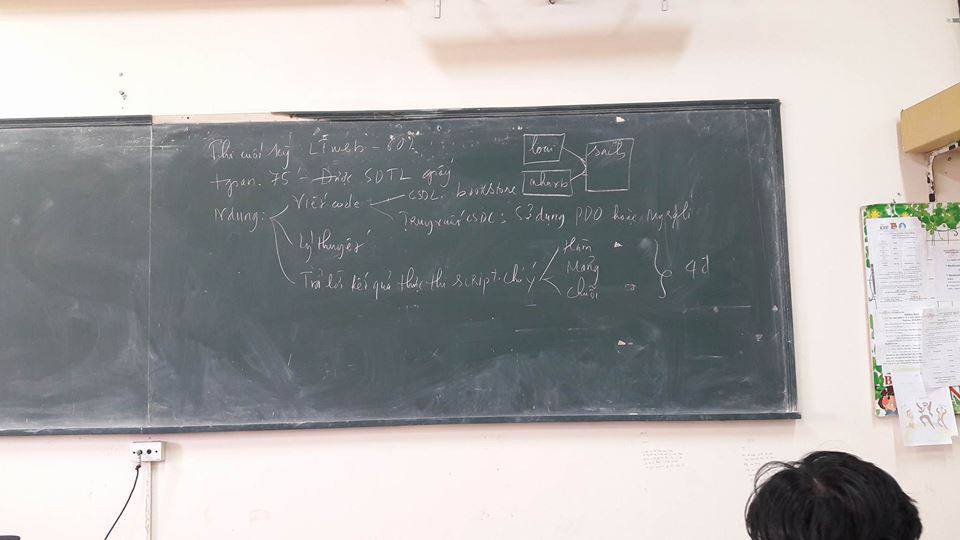 Thi cuối kỳ LT web - 80%
tgian. 75' - Được SDTL giấy
Ndung:
Viết code
CSDL: bookstore
loai
nhaxb
sach
Truy xuất CSDL: Sử dụng PDO hoặc mysqli
Lý thuyết
Trả lời kết quả thực thi script. chú ý
Hàm
Mảng
Chuỗi
4đ